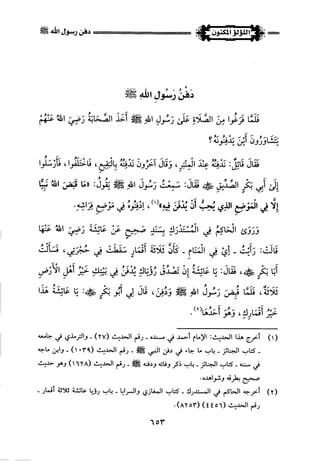 اللؤلؤ المكنون
دفن رسول الله ﷺ
دَفْنُ رَسُولِ اللهِ ﷺ
فَلَمَّا فَرَغُوا مِنَ الصَّلَاةِ عَلَى رَسُولِ اللهِ ﷺ أَخَذَ الصَّحَابَةُ رَضِيَ اللهُ عَنْهُمْ
يَتَشَاوَرُونَ أَيْنَ يَدْفِنُونَهُ؟
فَقَالَ قَائِلٌ: نَدْفِنُهُ عِنْدَ الْمِنْبَرِ، وَقَالَ آخَرُونَ نَدْفِنُهُ بِالْبَقِيعِ، فَاخْتَلَفُوا، فَأَرْسَلُوا
إِلَى أَبِي بَكْرٍ الصِّدِّيقِ ﷺ فَقَالَ: سَمِعْتُ رَسُولَ اللهِ ﷺ يَقُولُ: «مَا قَبَضَ اللهُ نَبِيًّا
إِلَّا فِي الْمَوْضِعِ الَّذِي يُحِبُّ أَنْ يُدْفَنَ فِيهِ»(١)، اِدْفِنُوهُ فِي مَوْضِعِ فِرَاشِهِ.
وَرَوَى الْحَاكِمُ فِي الْمُسْتَدْرَكِ بِسَنَدٍ صَحِيحٍ عَنْ عَائِشَةَ رَضِيَ اللهُ عَنْهَا
قَالَتْ: رَأَيْتُ - أَيْ فِي الْمَنَامِ - كَأَنَّ ثَلَاثَةَ أَقْمَارٍ سَقَطَتْ فِي حُجْرَتِي، فَسَأَلْتُ
أَبَا بَكْرٍ ﷺ، فَقَالَ: يَا عَائِشَةُ إِنْ تَصْدُقْ رُؤْيَاكِ يُدْفَنُ فِي بَيْتِكِ خَيْرُ أَهْلِ الْأَرْضِ
ثَلَاثَةٌ، فَلَمَّا قُبِضَ رَسُولُ اللهِ ﷺ وَدُفِنَ، قَالَ لِي أَبُو بَكْرٍ ﷺ: يَا عَائِشَةُ هَذَا
خَيْرُ أَقْمَارِكِ، وَهُوَ أَحَدُهَا(٢).
(١) أخرج هذا الحديث: الإمام أحمد في مسنده - رقم الحديث (٢٧) - والترمذي في جامعه
- كتاب الجنائز - باب ما جاء في دفن النبي ﷺ - رقم الحديث (١٠٣٩) - وابن ماجه
في سننه - كتاب الجنائز - باب ذكر وفاته ودفنه ﷺ - رقم الحديث (١٦٢٨) وهو حديث
صحيح بطرقه وشواهده.
(٢) أخرجه الحاكم في المستدرك - كتاب المغازي والسرايا - باب رؤيا عائشة ثلاثة أقمار -
رقم الحديث (٤٤٥٦) (٨٢٥٣).
٦٥٣